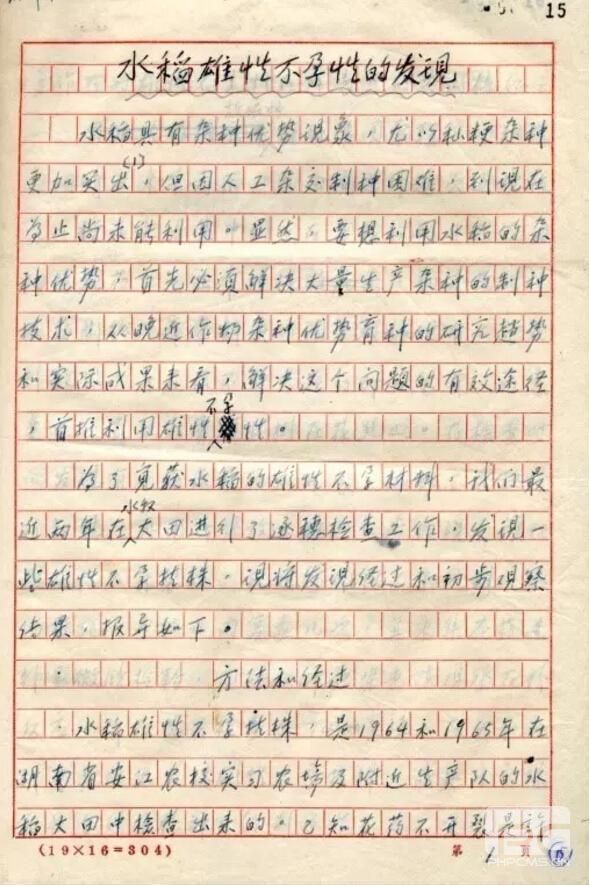 15
水稻雄性不孕性的发现
水稻具有杂种优势现象，尤以籼粳杂种
更加突出(1)，但因人工杂交制种困难，到现在
为止尚未能利用。显然，要想利用水稻的杂
种优势，首先必须解决大量生产杂种的制种
技术，从晚近作物杂种优势育种的研究趋势
和实际成果来看，解决这个问题的有效途径
，首推利用雄性不孕性。
为了更获水稻的雄性不孕材料，我们最
近两年在水稻大田进行了逐穗检查工作，发现一
些雄性不孕植株，现将发现经过和初步观察
结果，报导如下。
方法和经过
水稻雄性不孕植株，是1964和1965年在
湖南省安江农校实习农场及附近生产队的水
稻大田中检查出来的，已知花药不开裂是
(19×16=304)
第 1 页
PHPCMS.CN